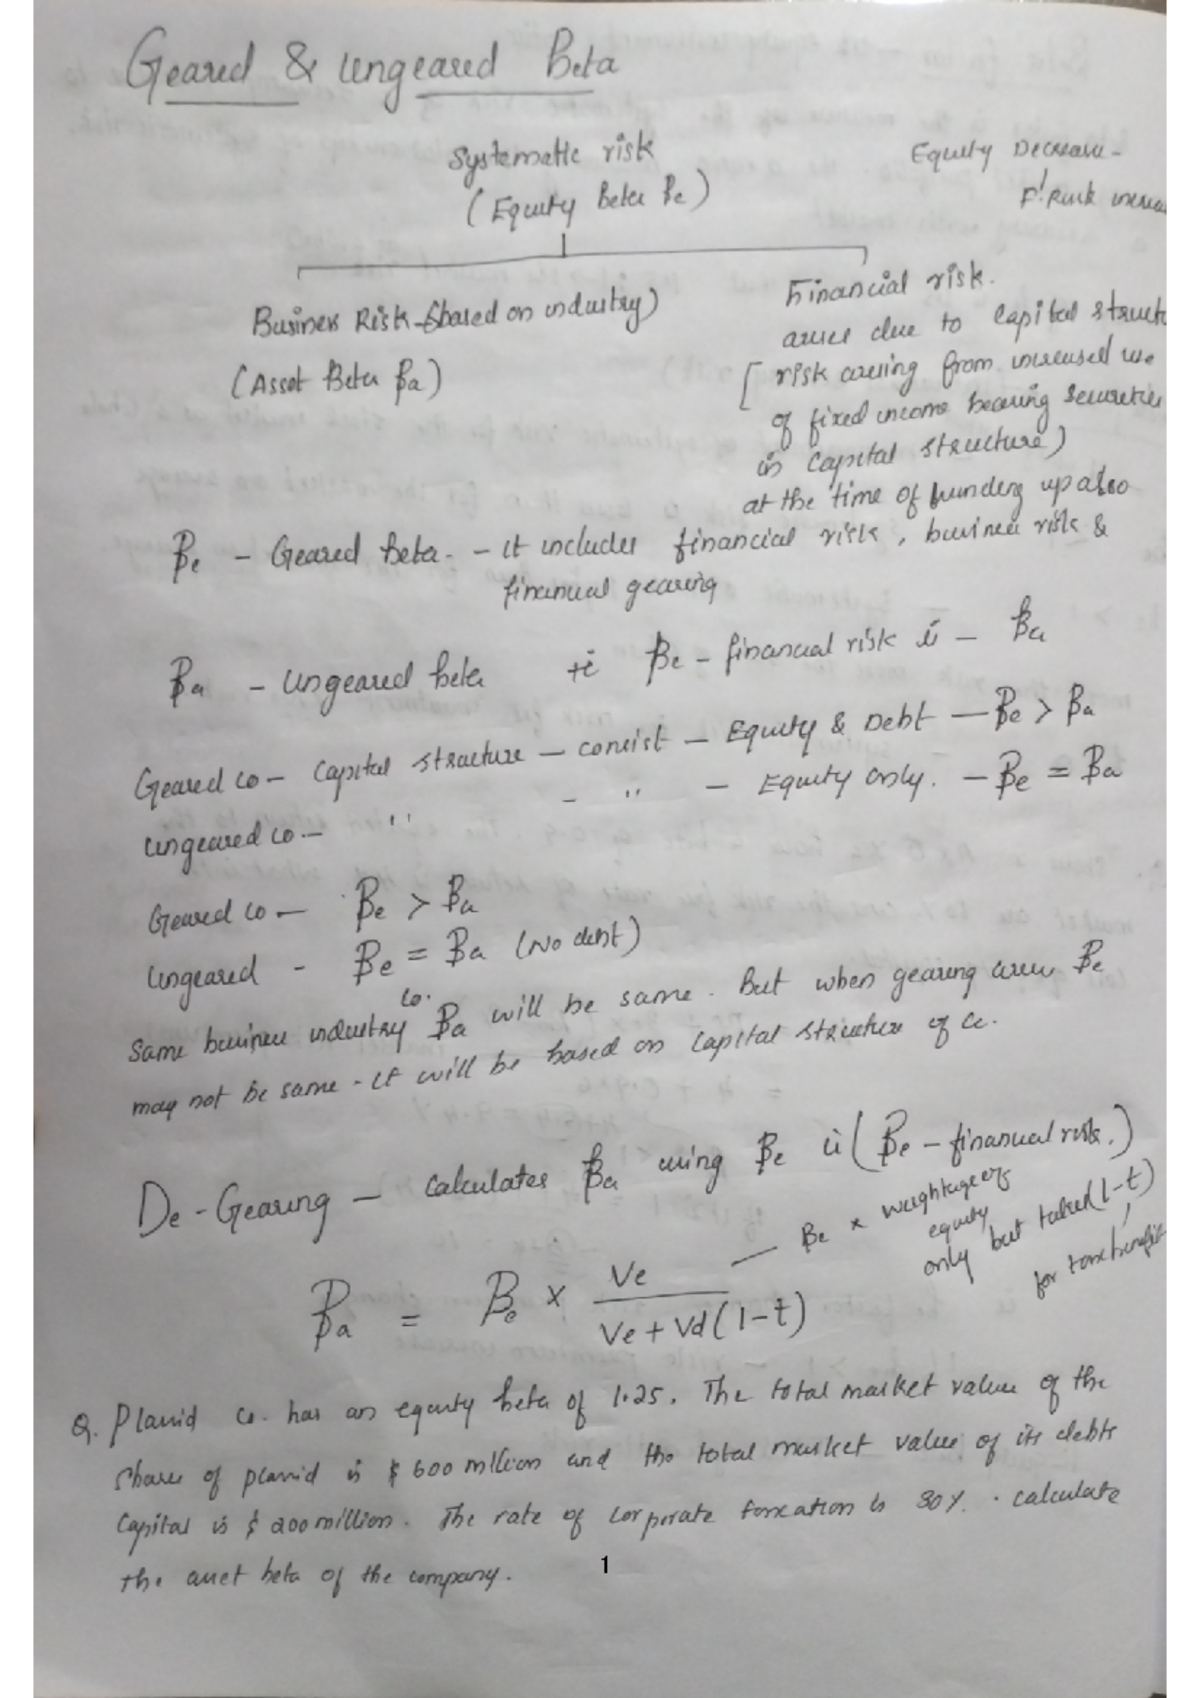 Geared & ungeared Beta
Systematic risk
(Equity Beta βe)
Equity Decrease -
F. Risk increas
Business Risk - (based on industry)
(Asset Beta βa)
Financial risk.
arises due to capital struct
[risk arising from increased use
of fixed income bearing securities
in capital structure)
at the time of winding up also
βe - Geared beta - It includes financial risk, business risk &
financial gearing
βa - ungeared beta ie βe - financial risk is - βa
Geared co - Capital structure - consist - Equity & Debt - βe > βa
ungeared co - " - " - Equity only. - βe = βa
Geared co - βe > βa
ungeared - βe = βa (No debt)
Same business industry co. βa will be same. But when gearing βe
may not be same - it will be based on capital structure of co.
De-Gearing - calculates βa using βe ie (βe - financial risk.)
βe × weightage of
equity
only but taxed (1-t)
for tax benefit
βa = βe × Ve
Ve + Vd(1-t)
Q. Planid co. has an equity beta of 1.25. The total market value of the
shares of planid is $ 600 million and the total market value of its debts
capital is $ 200 million. The rate of corporate taxation is 30%. calculate
the asset beta of the company.
1